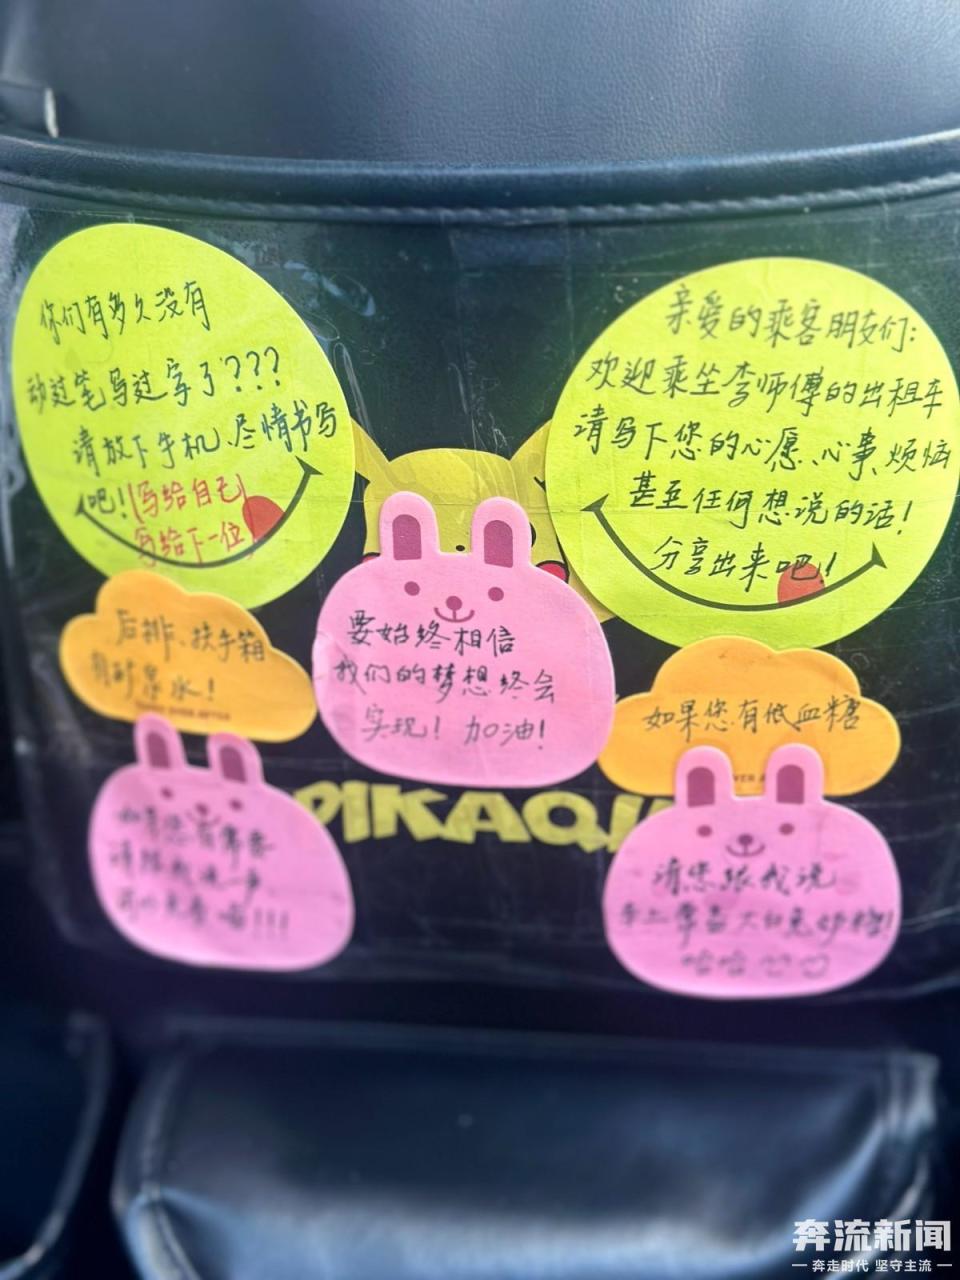 你们有多久没有
动过笔写过字了???
请放下手机,尽情书写
吧!(写给自己
写给下一位)
亲爱的乘客朋友们:
欢迎乘坐李师傅的出租车
请写下您的心愿、心事、烦恼
甚至任何想说的话!
分享出来吧!
要始终相信
我们的梦想终会
实现! 加油!
后排、扶手箱
有矿泉水!
如果您有需要
请跟我说一声
可以免费喝!!!
如果您有低血糖
请您跟我说
车上常备大白兔奶糖!
哈哈
PIKAQIU
奔流新闻
奔走时代 坚守主流